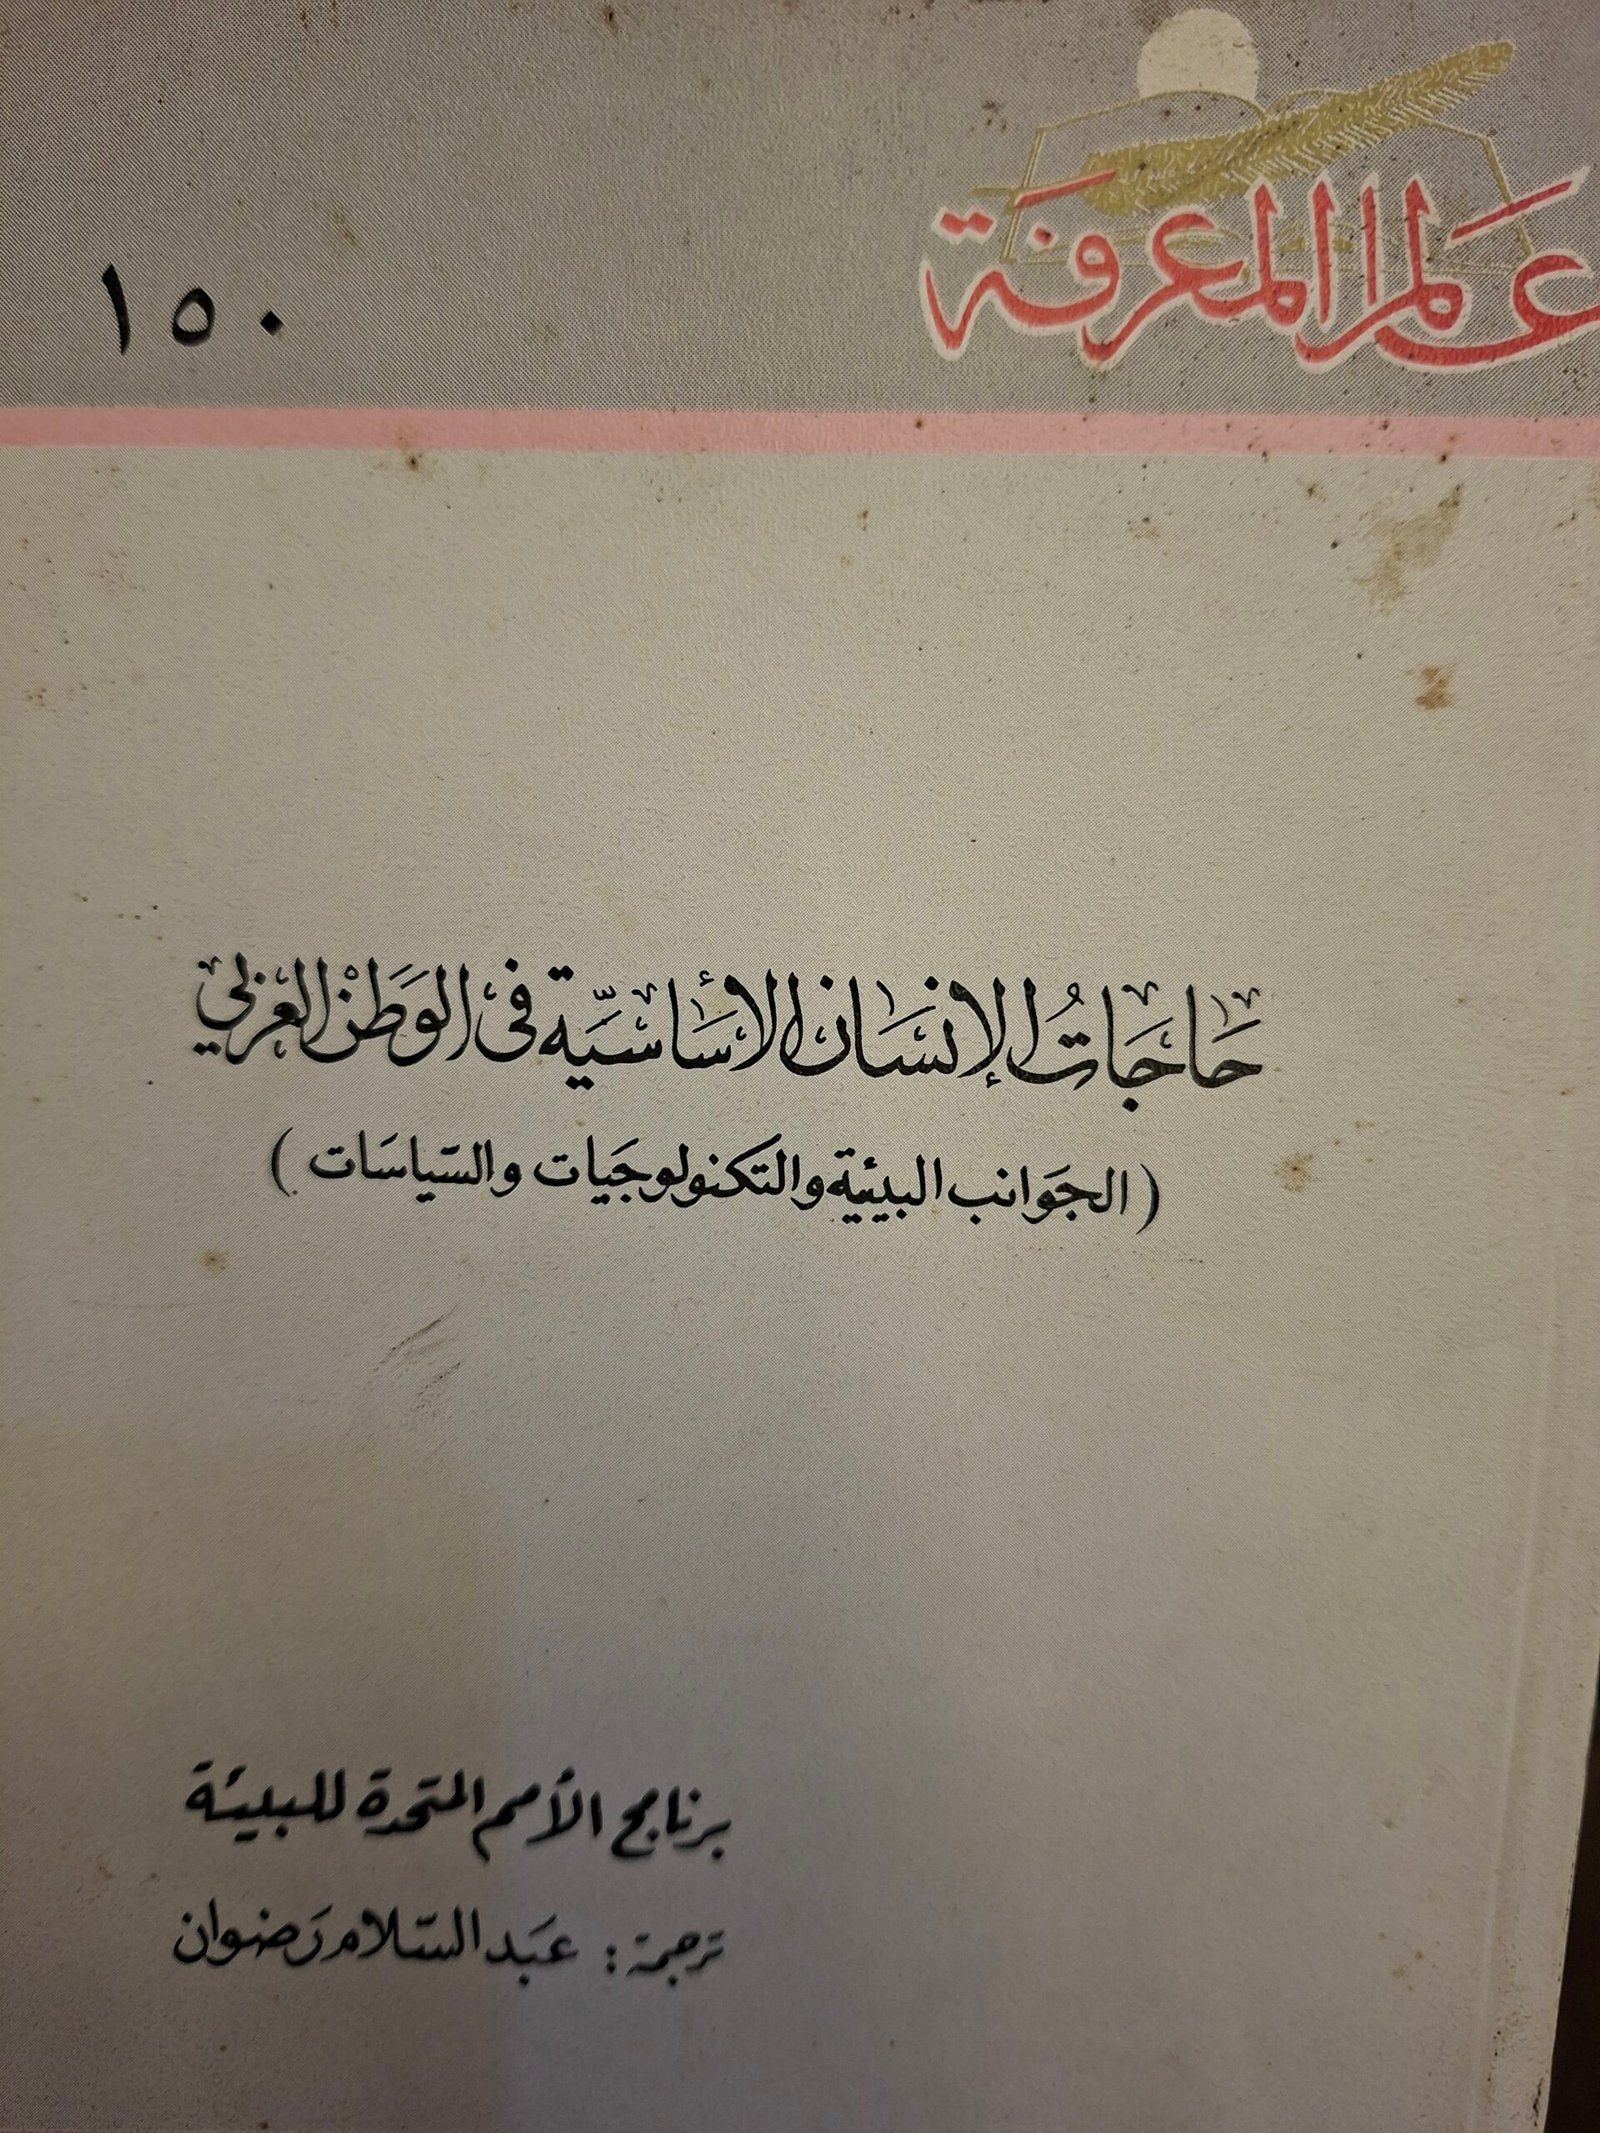 عالم المعرفة
١٥٠
حَاجَاتُ الإنسَان الأسَاسيَّة في الوَطَنْ العَرَبي
(الجَوانب البيئية والتكنولوجيَات والسّياسَات)
برنامج الأمم المتحدة للبيئة
ترجمة: عَبد السَّلام رَضوان